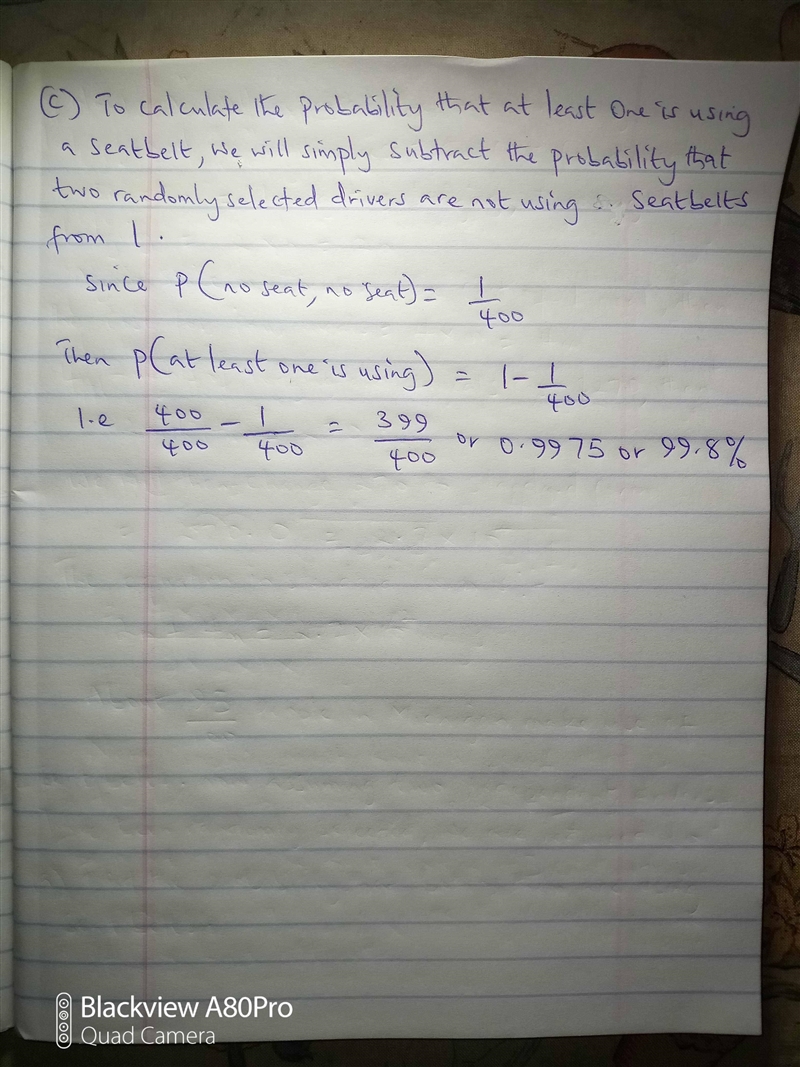 (c) To calculate the probability that at least one is using
a seatbelt, we will simply subtract the probability that
two randomly selected drivers are not using seatbelts
from 1.
since P(no seat, no seat) = 1/400
Then P(at least one is using) = 1 - 1/400
I.e 400/400 - 1/400 = 399/400 or 0.9975 or 99.8%
Blackview A80Pro
Quad Camera